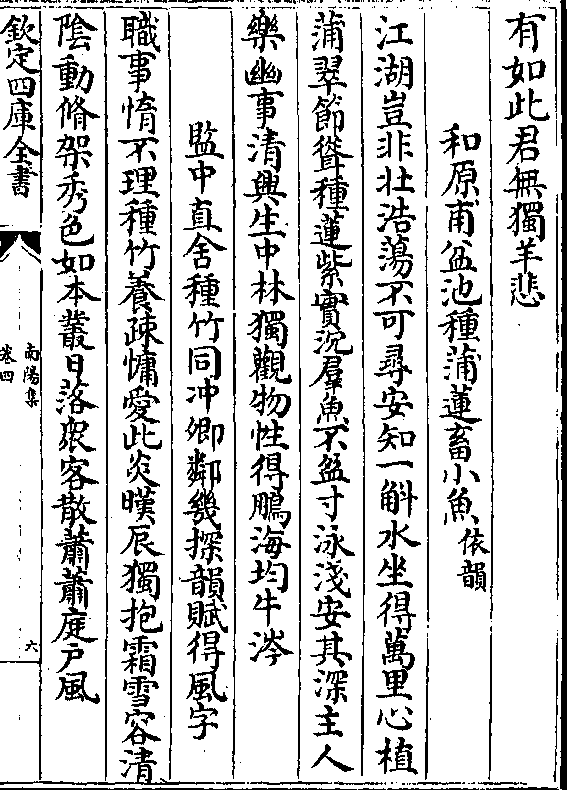 有如此君無獨羊悲
和原甫盆池種蒲蓮畜小魚依韻
江湖豈非壯浩蕩不可尋安知一斛水坐得萬里心植
蒲翠節聳種蓮紫實沉羣魚不盈寸泳淺安其深主人
樂幽事清興生中林獨觀物性得鵬海均牛涔
監中直舍種竹同沖卿鄰幾探韻賦得風字
職事惰不理種竹養疎慵愛此炎暵辰獨抱霜雪容清
陰動脩架秀色如本叢日落衆客散蕭蕭庭戶風
欽定四庫全書
南陽集
卷四
六